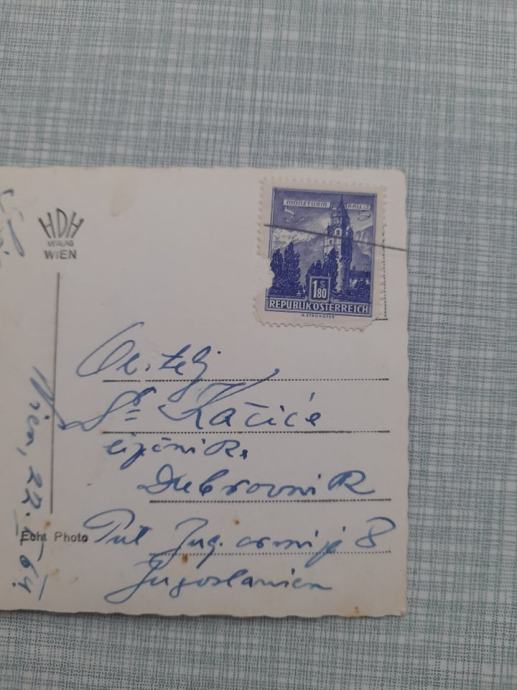 HDH
VERLAG
WIEN
MÜNZTURM HALL
1S 80
REPUBLIK ÖSTERREICH
Obitelj
Kačić
Dubrovnik
Put Jug. armije 8
Jugoslawien
Wien, 22.
64
Echt Photo